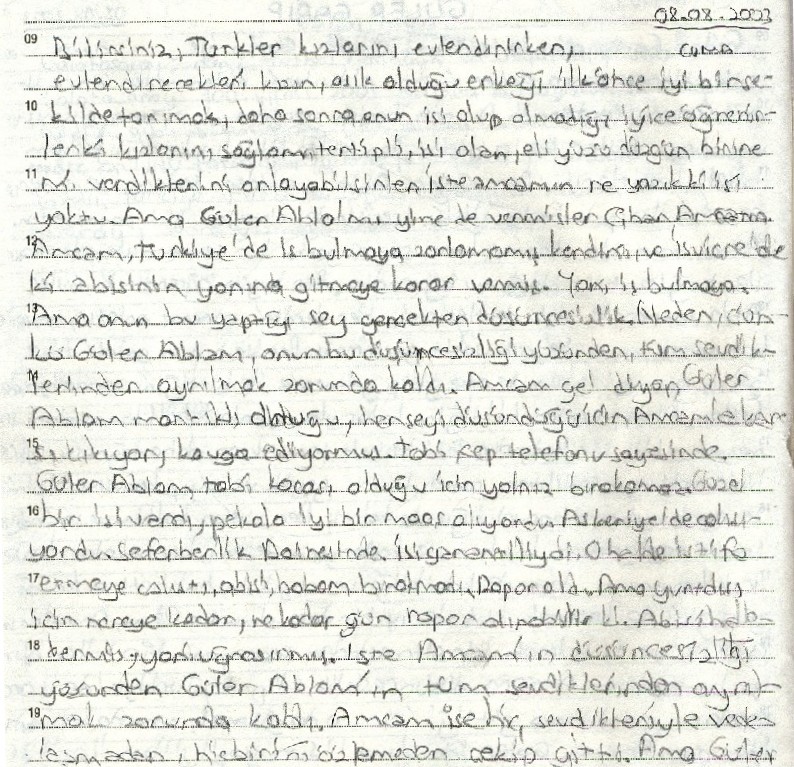 08.08.2003
09 Bilirsiniz, Türkler kızlarını evlendirirken, CUMA
evlendirecekleri kızın, aşık olduğu erkeği ilkönce iyi bir şe-
10 kilde tanımak, daha sonra onun işi olup olmadığı iyice öğrenir-
lerki kızlarını, sağlam, tertipli, işi olan, eli yüzü düzgün birine
11 mi verdiklerini anlayabilsinler işte amcamın ne yazıkki işi
yoktu. Ama Güler Ablamı yine de vermişler Cihan Amcama.
12 Amcam, Türkiye'de iş bulmaya zorlamamış kendini, ve İsviçre'de
ki abisinin yanına gitmeye karar vermiş. Yani iş bulmaya.
13 Ama onun bu yaptığı şey gerçekten düşüncesizlik. Neden, çün-
kü Güler Ablam, onun bu düşüncesizliği yüzünden, tüm sevdik-
14 lerinden ayrılmak zorunda kaldı. Amcam gel diyor, Güler
Ablam mantıklı olduğu, herşeyi düşündüğü için Amcamla kar-
15 şı çıkıyor, kavga ediyormuş. Tabi cep telefonu sayesinde.
Güler Ablam, tabi kocası olduğu için yalnız bırakamaz. Güzel
16 bir işi vardı, pekala iyi bir maaş alıyordu. Askeriye'de çalışı-
yordu. Seferberlik Dairesinde. İşi garantiliydi. O halde istifa
17 etmeye çalıştı, abisi, babam bırakmadı. Rapor aldı. Ama yurtdışı
için nereye kadar, ne kadar gün rapor alınabilirki.
18 yani uğraşınmış. İşte Amcam'ın düşüncesizliği
yüzünden Güler Ablam'ın tüm sevdiklerinden ayrıl-
19 mak zorunda kaldı. Amcam ise hiç, sevdikleriyle veda-
laşmadan, hiçbirini özlemeden çekip gitti. Ama Güler